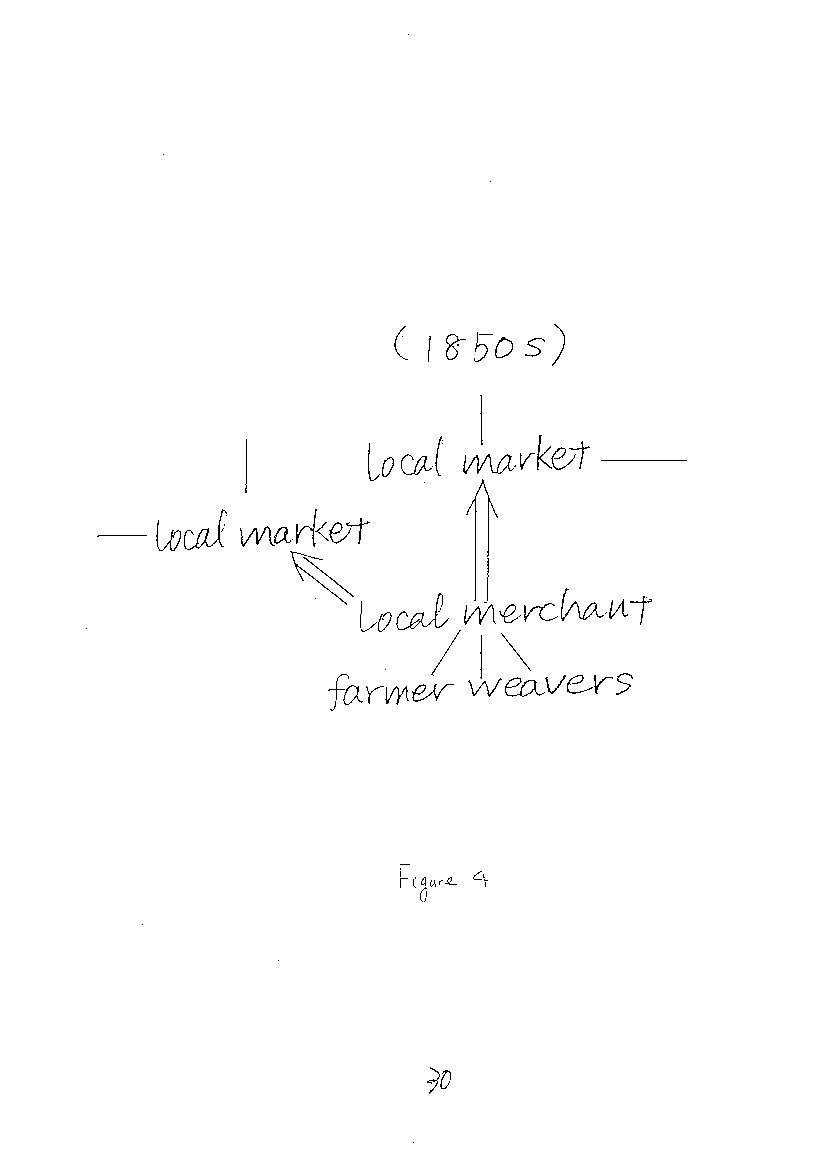 (1850s)
local market
local market
local merchant
farmer weavers
Figure 4
30